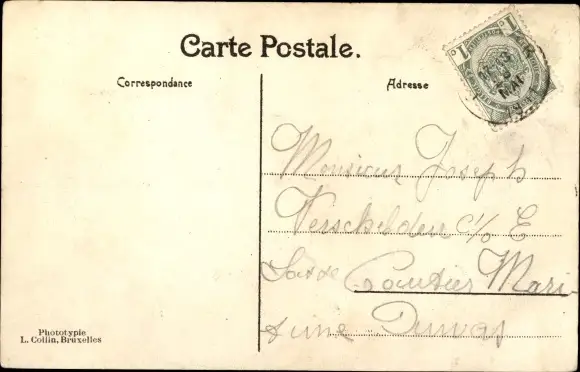 Carte Postale.
Correspondance
Adresse
1 1
MAI
Monsieur Joseph
Verschelden c/o E
Gautier Mari-
time
Phototypie
L. Collin, Bruxelles